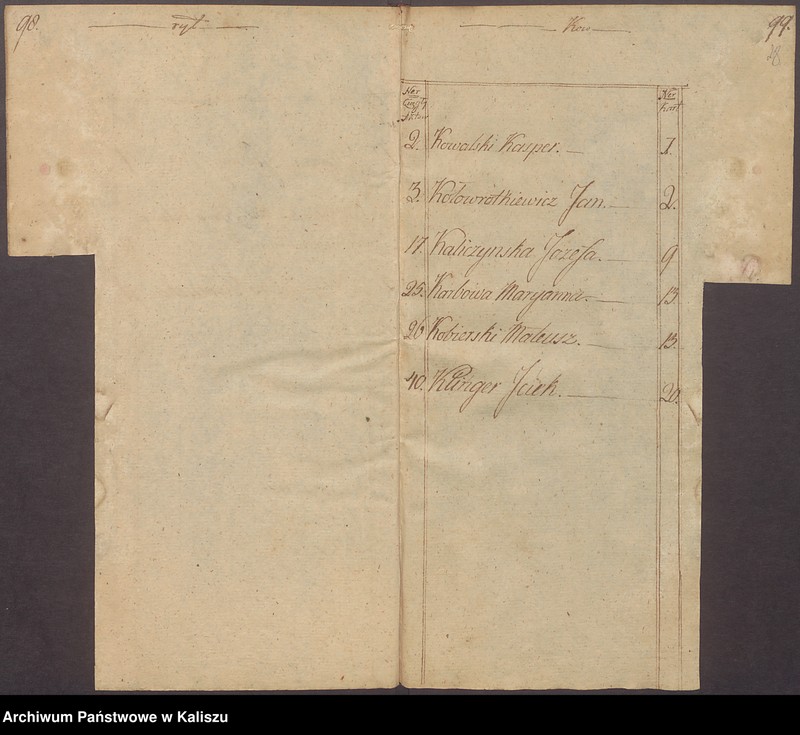 98.
ryt
Kow
99.
28
Ner
Ner
Aktow
kart
2. Kowalski Kasper. — 1.
3. Kołowrotkiewicz Jan. — 2.
17. Kaliczynska Jozefa. — 9
25. Karbowa Maryanna. — 13
26 Kobierski Mateusz. — 13.
40. Klinger Jciek. — 20.
Archiwum Państwowe w Kaliszu